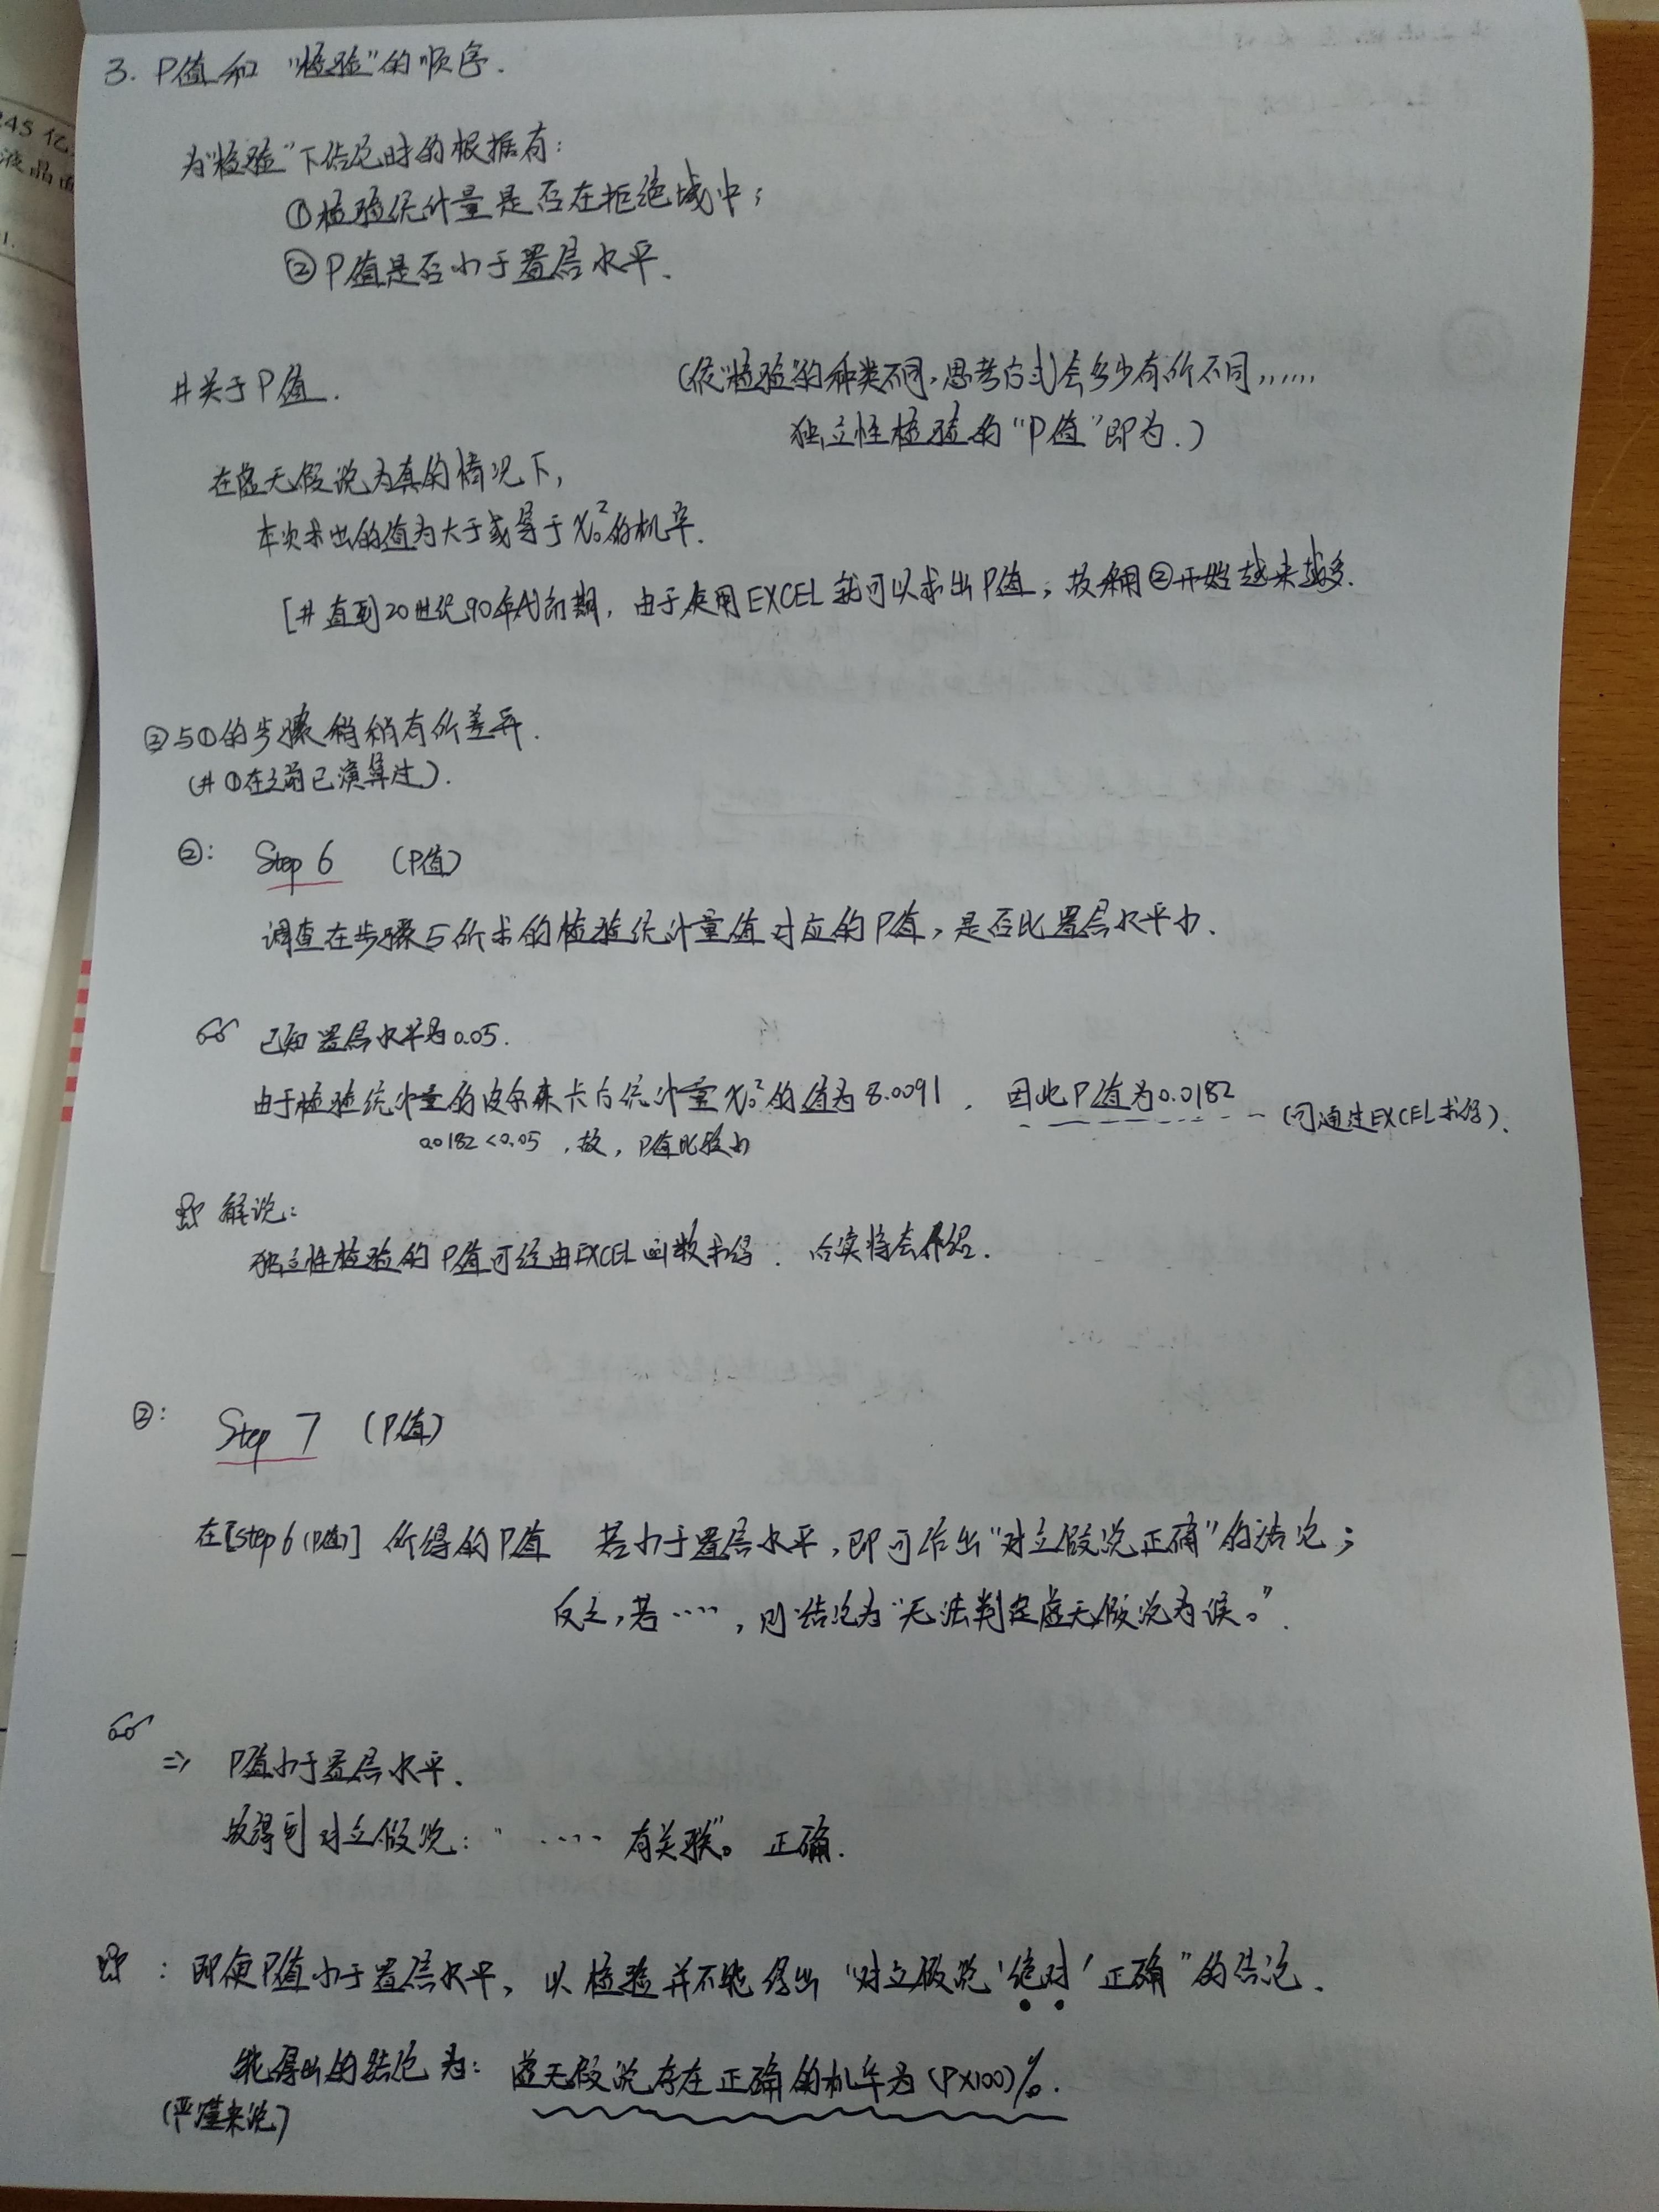 245亿
液晶面
3. P值和"检验"的顺序.
为"检验"下结论时的根据有:
①检验统计量是否在拒绝域中;
②P值是否小于置信水平.
#关于P值.
(依"检验"的种类不同,思考方式会多少有所不同......
独立性检验的"P值"即为.)
在虚无假说为真的情况下,
本次求出的值为大于或等于χ₀²的机率.
[#直到20世纪90年代前期,由于使用EXCEL就可以求出P值,故采用②开始越来越多.
②与①的步骤稍稍有所差异.
(#①在之前已演算过).
②: Step 6 (P值)
调查在步骤5所求的检验统计量值对应的P值,是否比置信水平小.
已知置信水平为0.05.
由于检验统计量的皮尔森卡方统计量χ₀²的值为8.0091. 因此P值为0.0182 (可通过EXCEL求得).
0.0182<0.05,故,P值比较小
解说:
独立性检验的P值可经由EXCEL函数求得. 后续将会介绍.
②: Step 7 (P值)
在[Step 6 (P值)]所得的P值 若小于置信水平,即可作出"对立假说正确"的结论;
反之,若....,则结论为"无法判定虚无假说为误。".
⇒ P值小于置信水平.
故得到对立假说:"....有关联"。正确.
: 即使P值小于置信水平,以检验并不能得出"对立假说'绝对'正确"的结论.
能得出的结论为: 虚无假说存在正确的机率为(P×100)%.
(严谨来说)